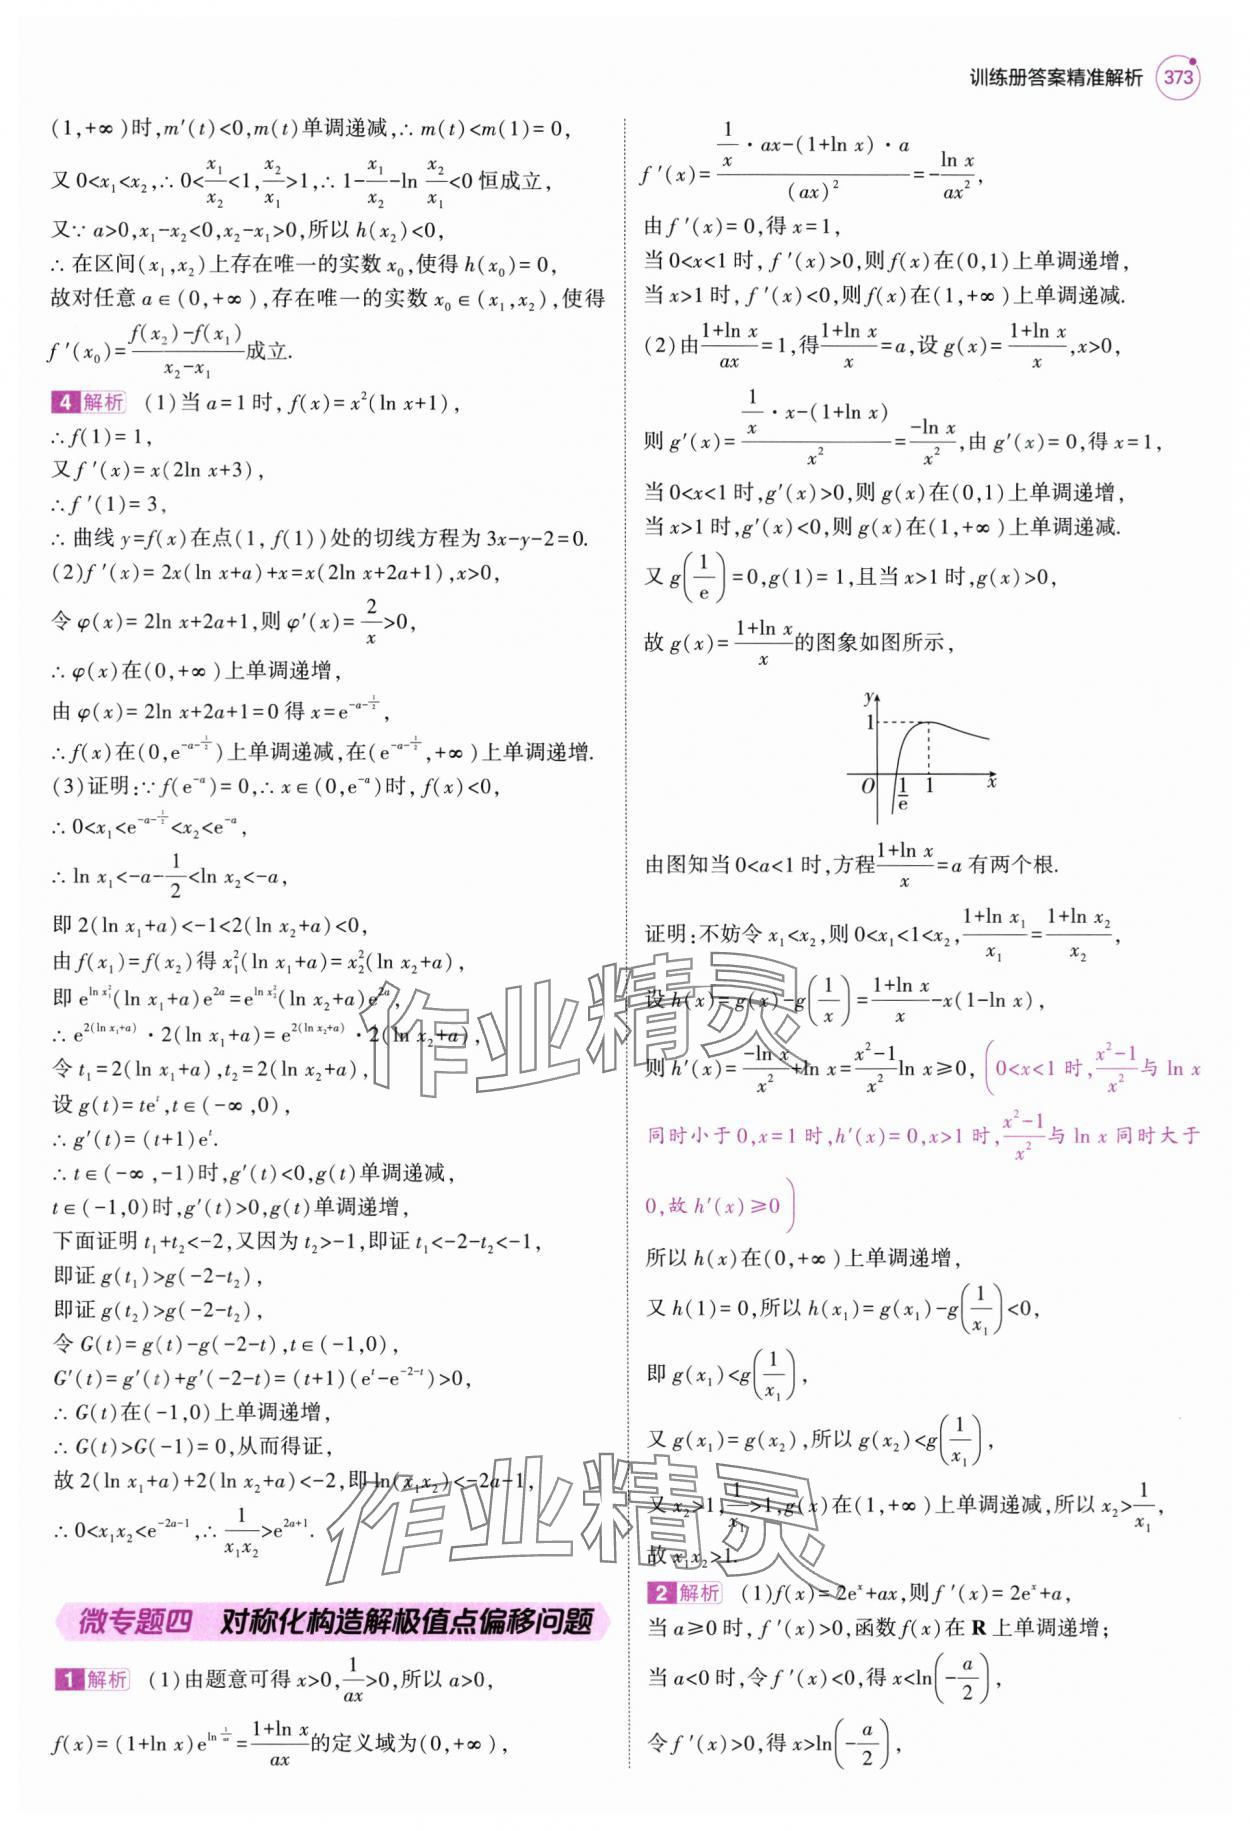 训练册答案精准解析 373
(1,+∞)时,m′(t)<0,m(t)单调递减,∴m(t)<m(1)=0,
又0<x₁<x₂,∴0<x₁/x₂<1,x₂/x₁>1,∴1-x₁/x₂-ln x₂/x₁<0恒成立,
又∵a>0,x₁-x₂<0,x₂-x₁>0,所以h(x₂)<0,
∴在区间(x₁,x₂)上存在唯一的实数x₀,使得h(x₀)=0,
故对任意a∈(0,+∞),存在唯一的实数x₀∈(x₁,x₂),使得
f′(x₀)=(f(x₂)-f(x₁))/(x₂-x₁)成立.
4 解析 (1)当a=1时,f(x)=x²(ln x+1),
∴f(1)=1,
又f′(x)=x(2ln x+3),
∴f′(1)=3,
∴曲线y=f(x)在点(1,f(1))处的切线方程为3x-y-2=0.
(2)f′(x)=2x(ln x+a)+x=x(2ln x+2a+1),x>0,
令φ(x)=2ln x+2a+1,则φ′(x)=2/x>0,
∴φ(x)在(0,+∞)上单调递增,
由φ(x)=2ln x+2a+1=0得x=e^(-a-1/2),
∴f(x)在(0,e^(-a-1/2))上单调递减,在(e^(-a-1/2),+∞)上单调递增.
(3)证明:∵f(e^(-a))=0,∴x∈(0,e^(-a))时,f(x)<0,
∴0<x₁<e^(-a-1/2)<x₂<e^(-a),
∴ln x₁<-a-1/2<ln x₂<-a,
即2(ln x₁+a)<-1<2(ln x₂+a)<0,
由f(x₁)=f(x₂)得x₁²(ln x₁+a)=x₂²(ln x₂+a),
即e^(ln x₁²)(ln x₁+a)e^(2a)=e^(ln x₂²)(ln x₂+a)e^(2a),
∴e^(2(ln x₁+a))·2(ln x₁+a)=e^(2(ln x₂+a))·2(ln x₂+a),
令t₁=2(ln x₁+a),t₂=2(ln x₂+a),
设g(t)=te^t,t∈(-∞,0),
∴g′(t)=(t+1)e^t.
∴t∈(-∞,-1)时,g′(t)<0,g(t)单调递减,
t∈(-1,0)时,g′(t)>0,g(t)单调递增,
下面证明t₁+t₂<-2,又因为t₂>-1,即证t₁<-2-t₂<-1,
即证g(t₁)>g(-2-t₂),
即证g(t₂)>g(-2-t₂),
令G(t)=g(t)-g(-2-t),t∈(-1,0),
G′(t)=g′(t)+g′(-2-t)=(t+1)(e^t-e^(-2-t))>0,
∴G(t)在(-1,0)上单调递增,
∴G(t)>G(-1)=0,从而得证,
故2(ln x₁+a)+2(ln x₂+a)<-2,即ln(x₁x₂)<-2a-1,
∴0<x₁x₂<e^(-2a-1),∴1/(x₁x₂)>e^(2a+1).
微专题四 对称化构造解极值点偏移问题
1 解析 (1)由题意可得x>0,1/(ax)>0,所以a>0,
f(x)=(1+ln x)e^(ln 1/(ax))=(1+ln x)/(ax)的定义域为(0,+∞),
f′(x)=(1/x·ax-(1+ln x)·a)/(ax)²=-ln x/(ax²),
由f′(x)=0,得x=1,
当0<x<1时,f′(x)>0,则f(x)在(0,1)上单调递增,
当x>1时,f′(x)<0,则f(x)在(1,+∞)上单调递减.
(2)由(1+ln x)/(ax)=1,得(1+ln x)/x=a,设g(x)=(1+ln x)/x,x>0,
则g′(x)=(1/x·x-(1+ln x))/x²=-ln x/x²,由g′(x)=0,得x=1,
当0<x<1时,g′(x)>0,则g(x)在(0,1)上单调递增,
当x>1时,g′(x)<0,则g(x)在(1,+∞)上单调递减.
又g(1/e)=0,g(1)=1,且当x>1时,g(x)>0,
故g(x)=(1+ln x)/x的图象如图所示,
y
1
O 1/e 1 x
由图知当0<a<1时,方程(1+ln x)/x=a有两个根.
证明:不妨令x₁<x₂,则0<x₁<1<x₂,(1+ln x₁)/x₁=(1+ln x₂)/x₂,
设h(x)=g(x)-g(1/x)=(1+ln x)/x-x(1-ln x),
则h′(x)=-ln x/x²+ln x=(x²-1)/x² ln x≥0,(0<x<1时,(x²-1)/x²与ln x
同时小于0,x=1时,h′(x)=0,x>1时,(x²-1)/x²与ln x同时大于
0,故h′(x)≥0)
所以h(x)在(0,+∞)上单调递增,
又h(1)=0,所以h(x₁)=g(x₁)-g(1/x₁)<0,
即g(x₁)<g(1/x₁),
又g(x₁)=g(x₂),所以g(x₂)<g(1/x₁),
又x₂>1,1/x₁>1,g(x)在(1,+∞)上单调递减,所以x₂>1/x₁,
故x₁x₂>1.
2 解析 (1)f(x)=2e^x+ax,则f′(x)=2e^x+a,
当a≥0时,f′(x)>0,函数f(x)在R上单调递增;
当a<0时,令f′(x)<0,得x<ln(-a/2),
令f′(x)>0,得x>ln(-a/2),
作业精灵
作业精灵